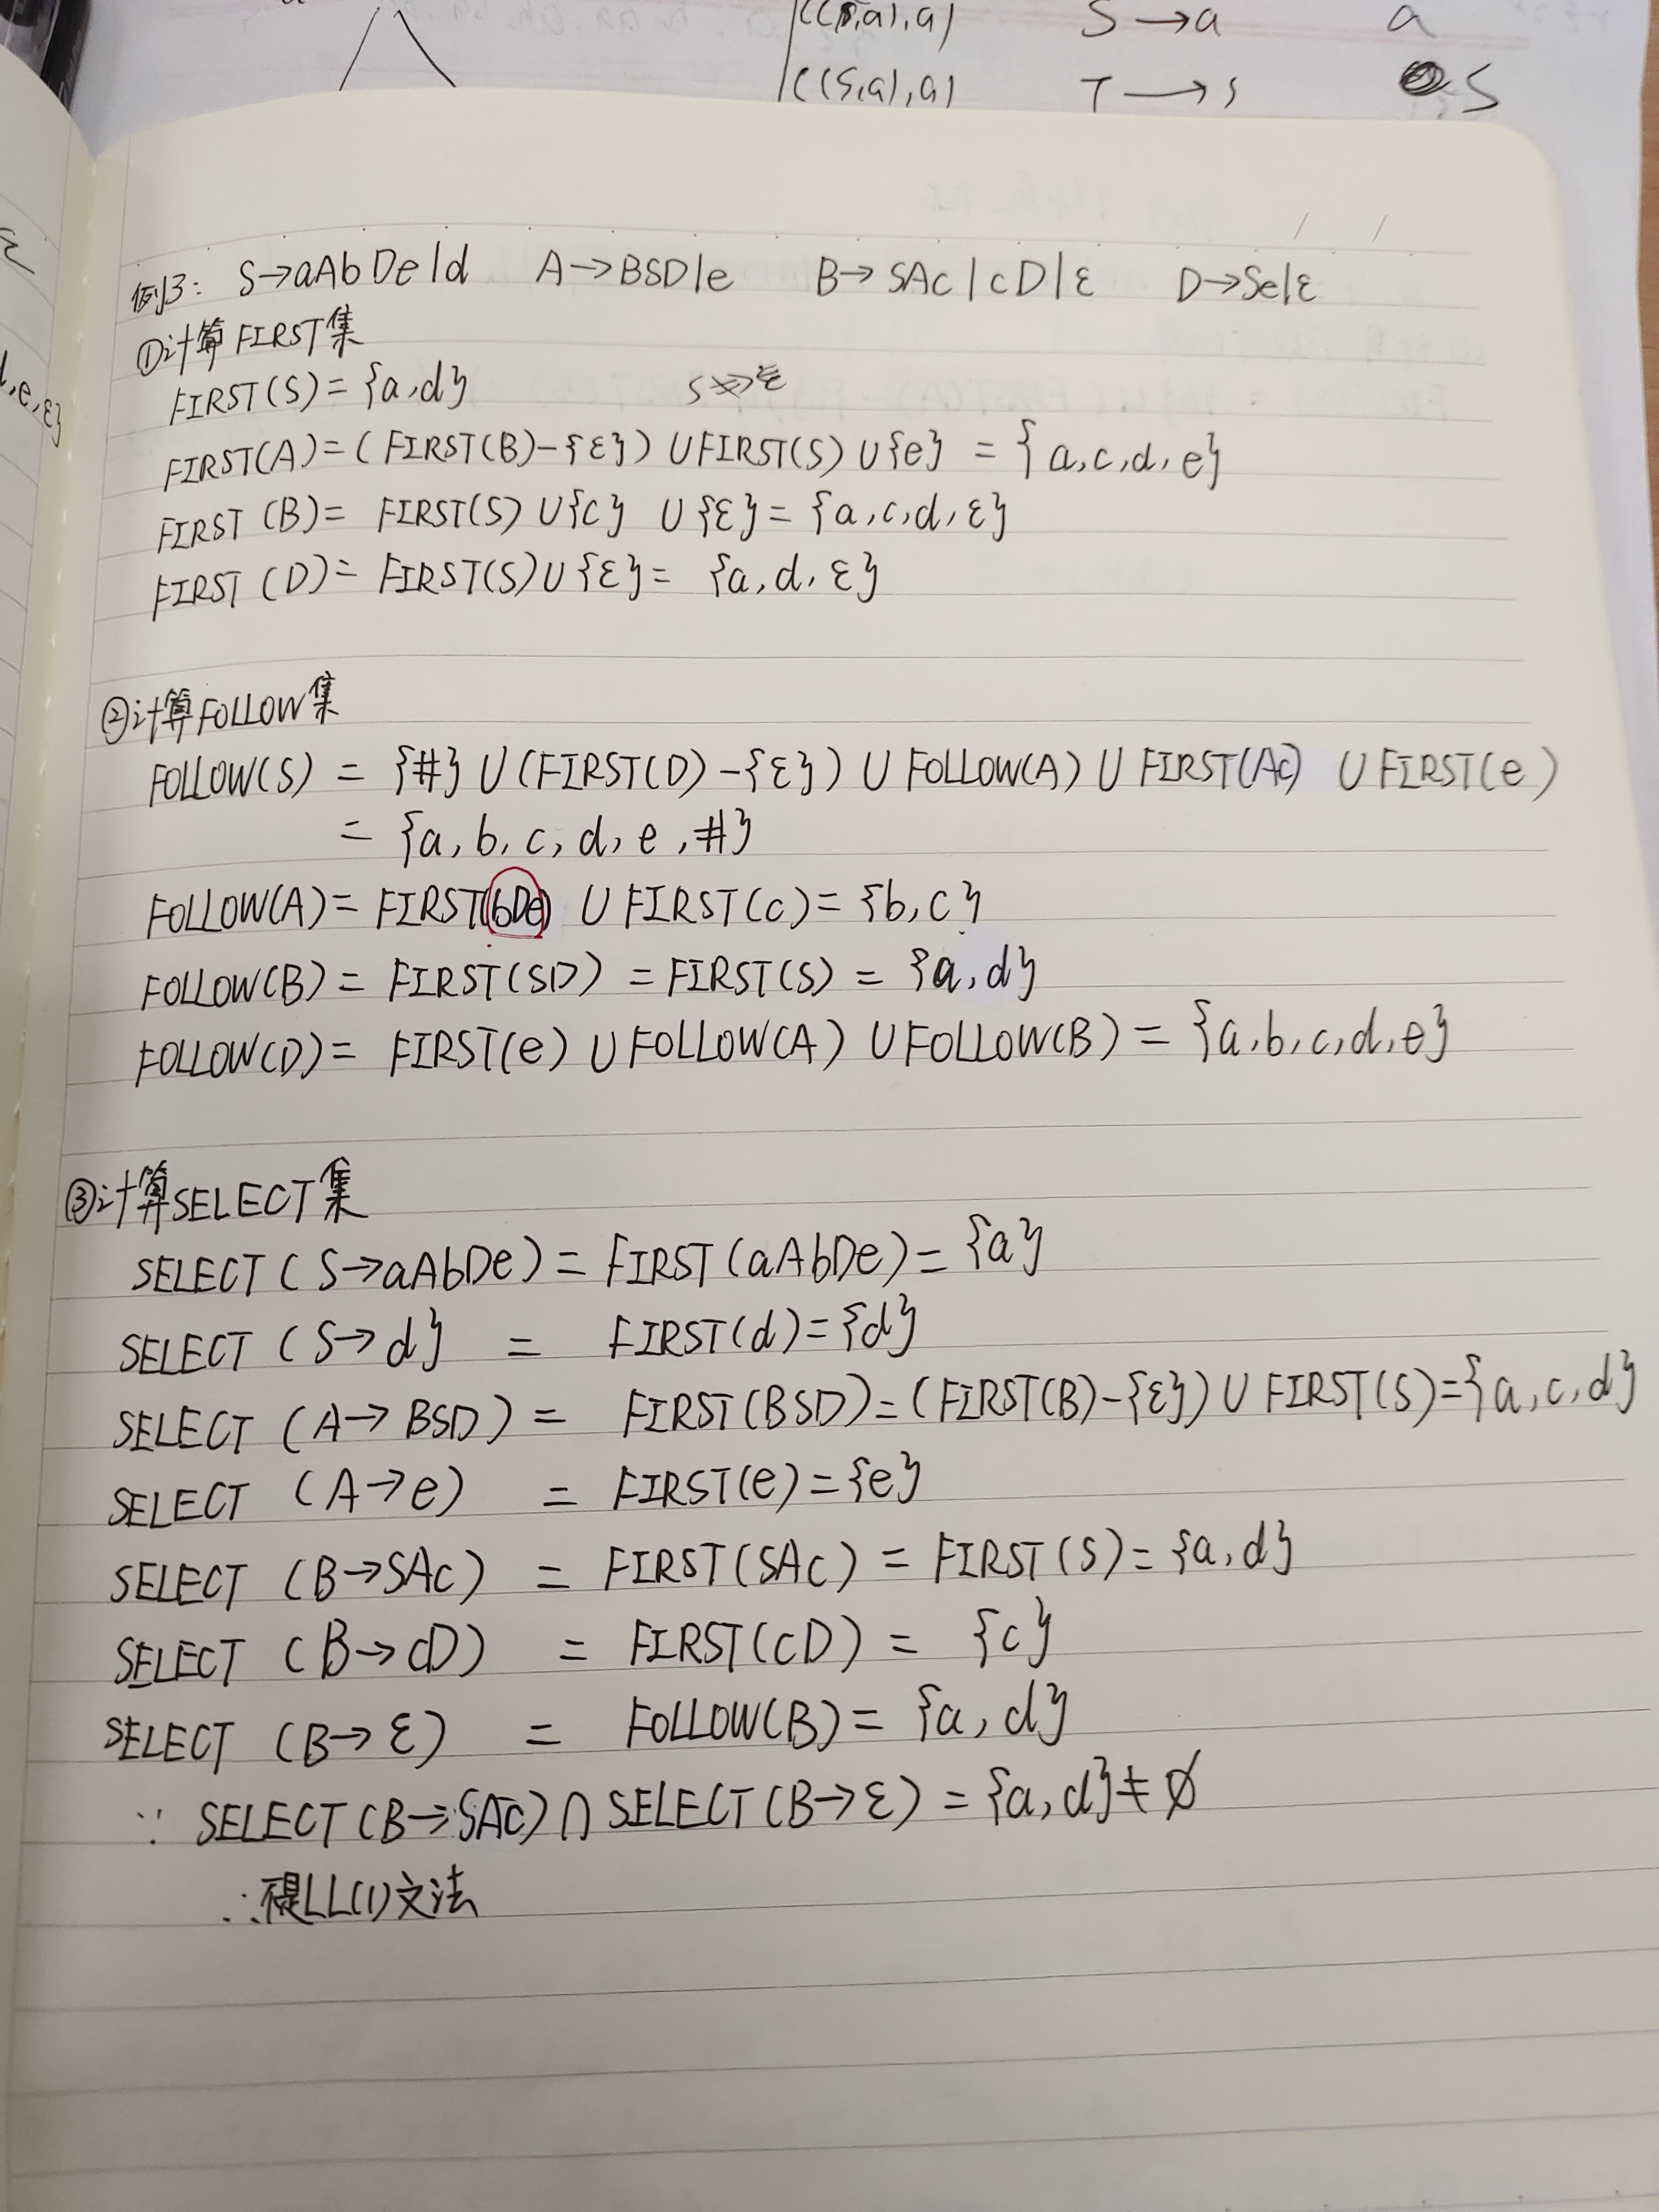 ((S,a),a) S→a a
((S,a),a) T→s S
例3: S→aAbDe|d A→BSD|e B→SAc|cD|ε D→Se|ε
①计算FIRST集
FIRST(S)={a,d}
FIRST(A)=(FIRST(B)-{ε})∪FIRST(S)∪{e} ={a,c,d,e}
FIRST(B)= FIRST(S)∪{c} ∪{ε}={a,c,d,ε}
FIRST(D)= FIRST(S)∪{ε}= {a,d,ε}
②计算FOLLOW集
FOLLOW(S) = {#}∪(FIRST(D)-{ε})∪FOLLOW(A)∪FIRST(Ac) ∪FIRST(e)
= {a,b,c,d,e,#}
FOLLOW(A)= FIRST(bDe) ∪FIRST(c)={b,c}
FOLLOW(B)= FIRST(SD) =FIRST(S) = {a,d}
FOLLOW(D)= FIRST(e)∪FOLLOW(A)∪FOLLOW(B)={a,b,c,d,e}
③计算SELECT集
SELECT(S→aAbDe)=FIRST(aAbDe)={a}
SELECT(S→d} = FIRST(d)={d}
SELECT(A→BSD)= FIRST(BSD)=(FIRST(B)-{ε})∪FIRST(S)={a,c,d}
SELECT(A→e) = FIRST(e)={e}
SELECT(B→SAc) = FIRST(SAc)=FIRST(S)={a,d}
SELECT(B→cD) = FIRST(cD)= {c}
SELECT(B→ε) = FOLLOW(B)={a,d}
∵ SELECT(B→SAc)∩SELECT(B→ε)={a,d}≠∅
∴不是LL(1)文法